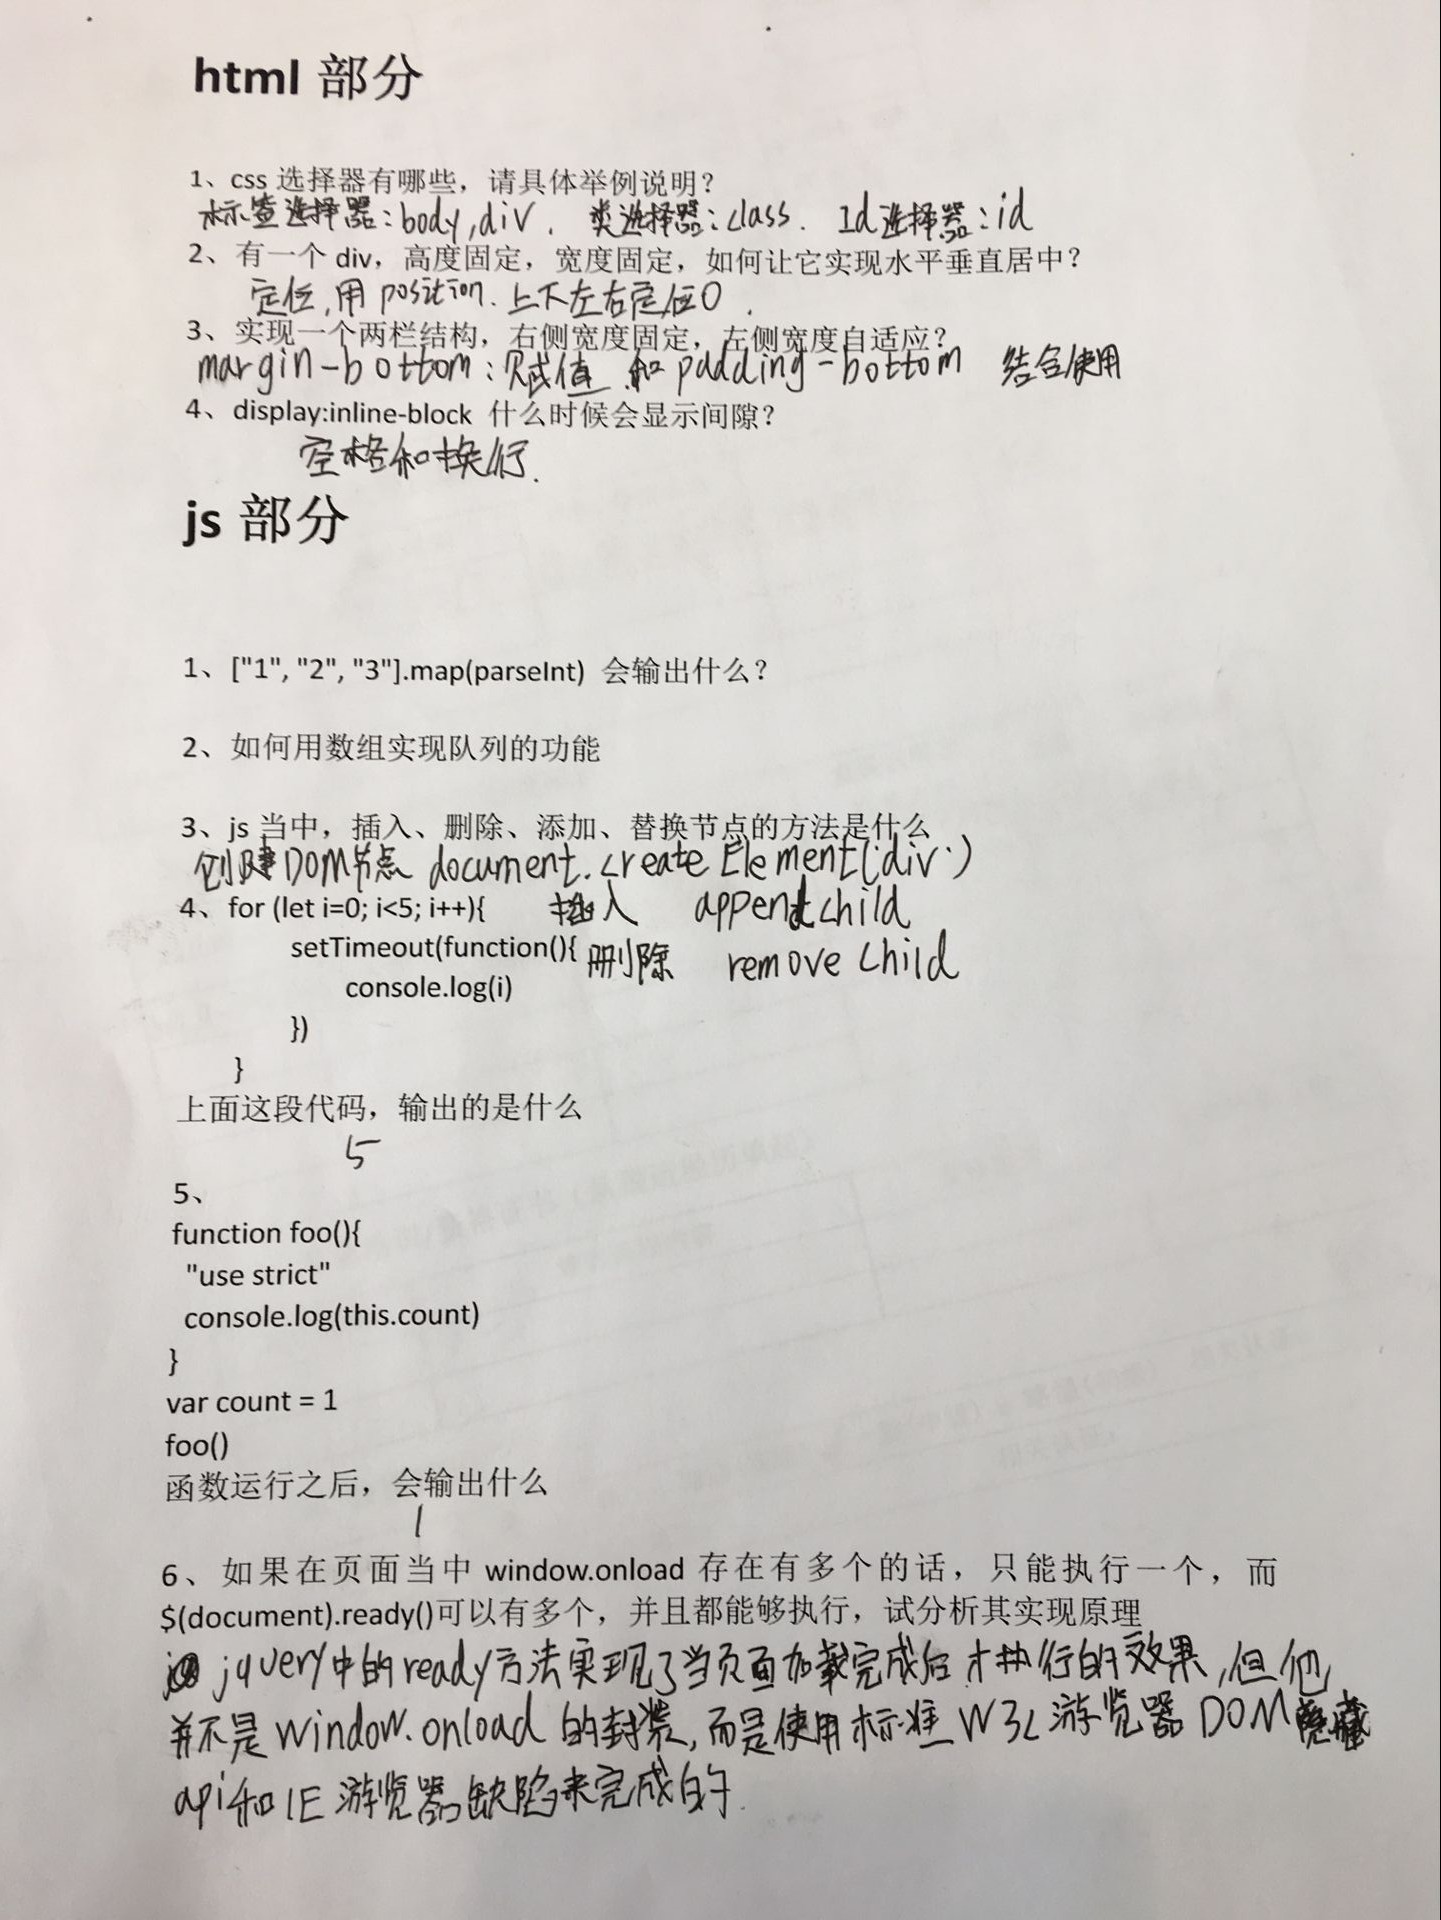 html 部分
1、css 选择器有哪些，请具体举例说明？
标签选择器：body,div. 类选择器：class. Id选择器：id
2、有一个 div，高度固定，宽度固定，如何让它实现水平垂直居中？
定位,用 position. 上下左右定位0.
3、实现一个两栏结构，右侧宽度固定，左侧宽度自适应？
margin-bottom：赋值 和 padding-bottom 结合使用
4、display:inline-block 什么时候会显示间隙？
空格和换行.
js 部分
1、["1", "2", "3"].map(parseInt) 会输出什么？
2、如何用数组实现队列的功能
3、js 当中，插入、删除、添加、替换节点的方法是什么
创建DOM节点 document.createElement('div')
4、for (let i=0; i<5; i++){ 插入 appendchild
setTimeout(function(){ 删除 removechild
console.log(i)
})
}
上面这段代码，输出的是什么
5
5、
function foo(){
"use strict"
console.log(this.count)
}
var count = 1
foo()
函数运行之后，会输出什么
1
6、如果在页面当中 window.onload 存在有多个的话，只能执行一个，而
$(document).ready()可以有多个，并且都能够执行，试分析其实现原理
jquery中的ready方法实现了当页面加载完成后才执行的效果,但他
并不是window.onload 的封装,而是使用标准W3C游览器DOM隐藏
api和IE游览器缺陷来完成的.